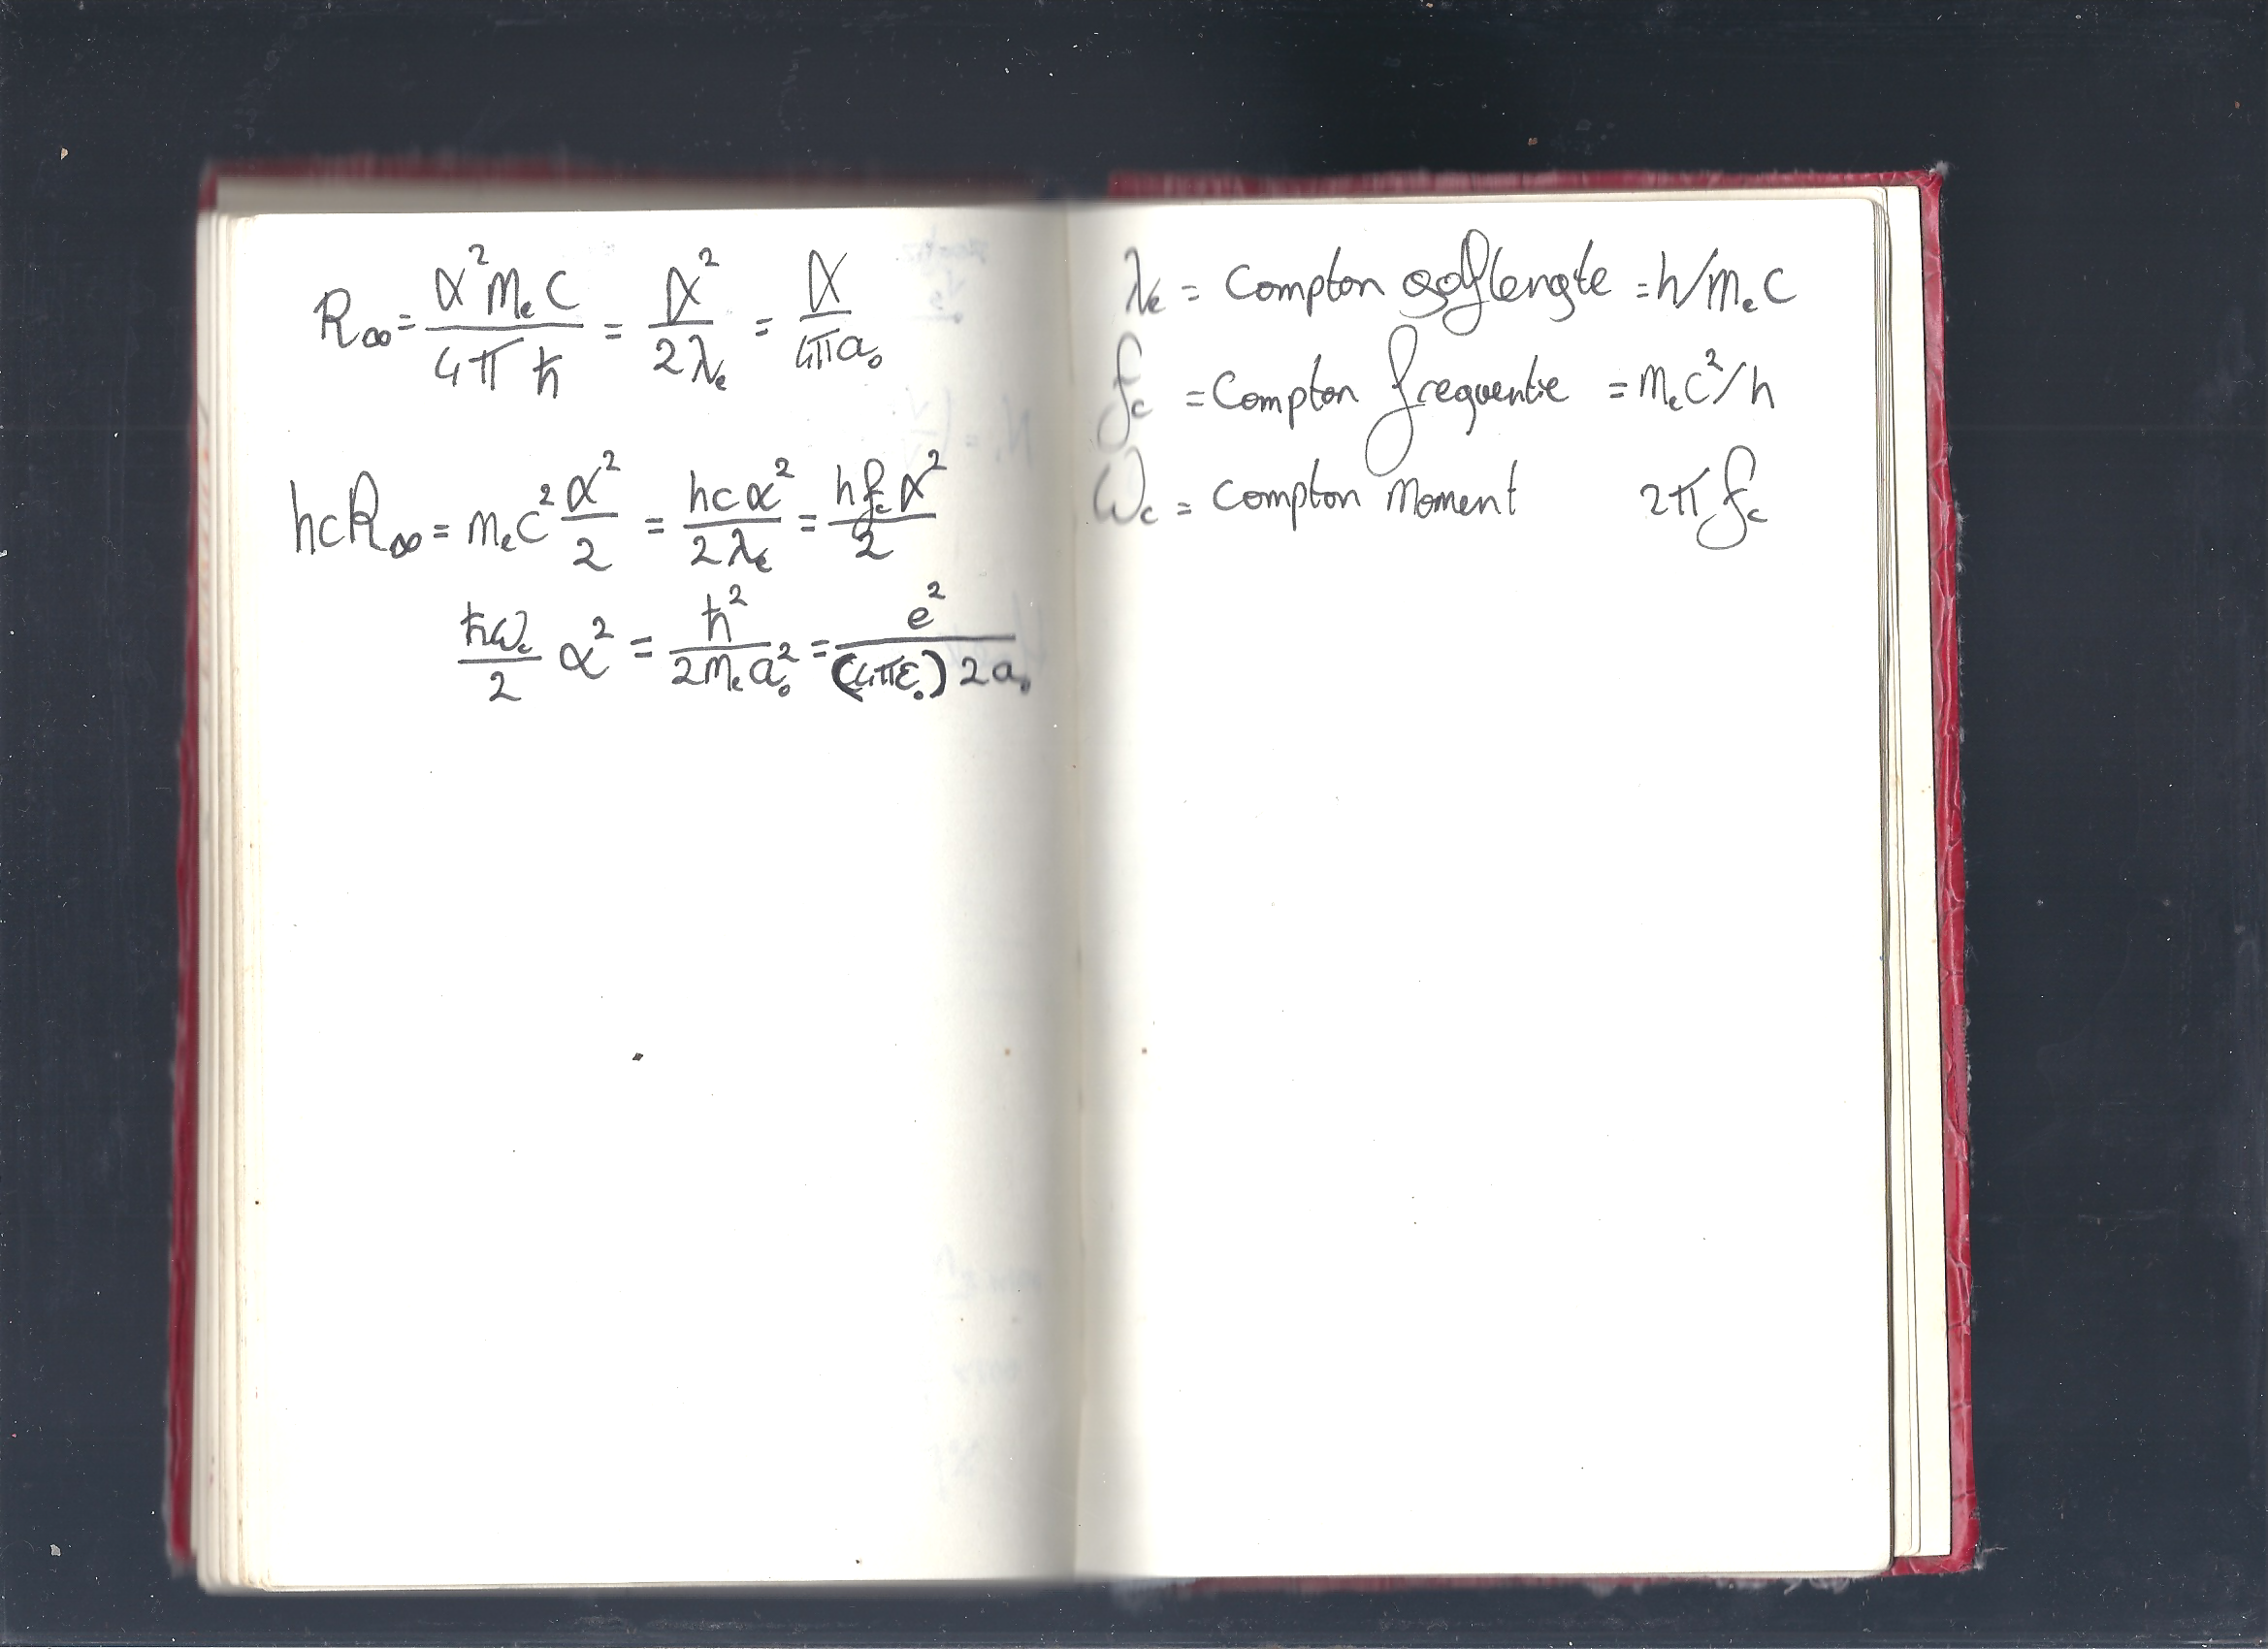 R∞ = α²mₑc / 4πħ = α² / 2λₑ = α / 4πa₀
hcR∞ = mₑc² α² / 2 = hcα² / 2λₑ = hf_cα² / 2
ħω_c / 2 α² = ħ² / 2mₑa₀² = e² / (4πε₀) 2a₀
λₑ = Compton golflengte = h/mₑc
f_c = Compton frequentie = mₑc²/h
ω_c = Compton Moment 2πf_c